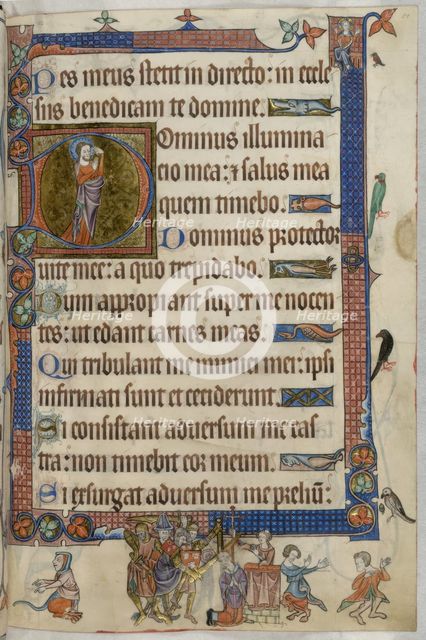 Pes meus stetit in directo: in eccle
siis benedicam te domine.
Dominus illumina
cio mea: & salus mea
quem timebo.
Dominus protector
uite mee: a quo trepidabo.
Dum appropiant super me nocen
tes: ut edant carnes meas.
Qui tribulant me inimici mei: ipsi
infirmati sunt et ceciderunt.
Si consistant aduersum me cas
tra: non timebit cor meum.
Si exsurgat aduersum me prelium:
Heritage
Heritage
Heritage
Heritage
Heritage
Heritage
Heritage